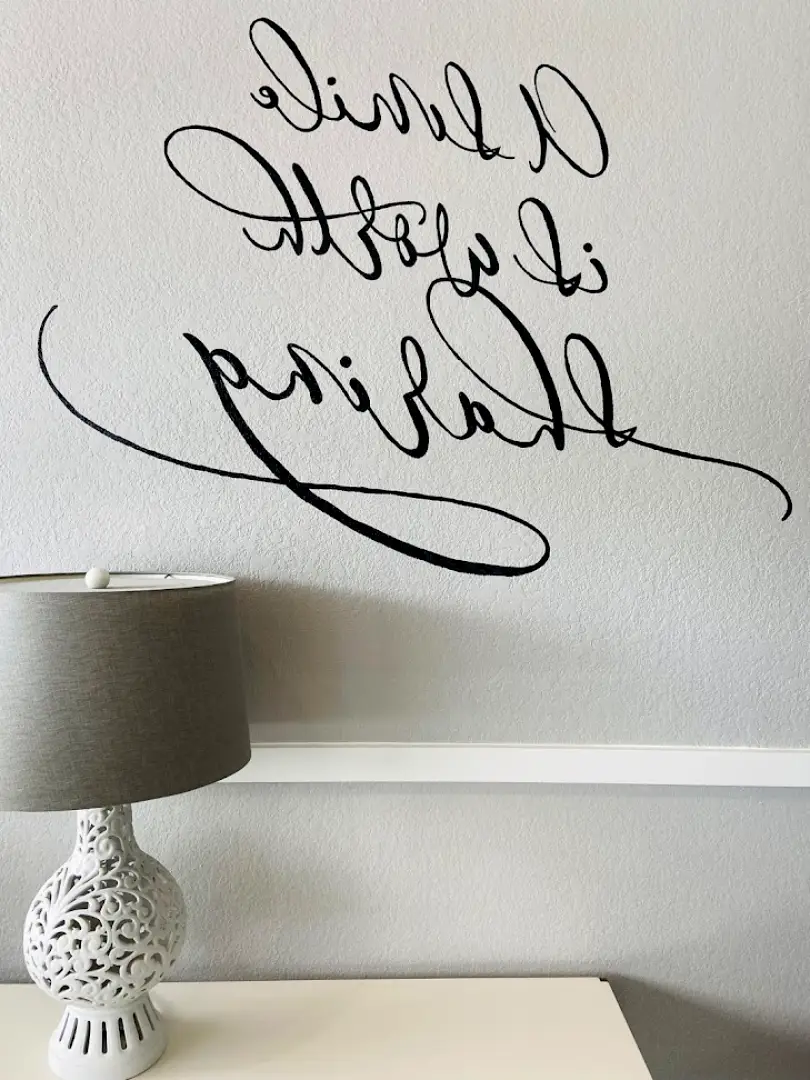 A smile
is worth
sharing